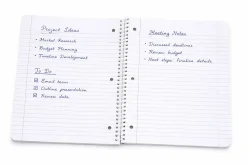 Project Ideas
• Market Research
• Budget Planning
• Timeline Development
To Do
Email team
Outline presentation
Review data
Meeting Notes
• Discussed deadlines
• Review budget
• Next steps: finalize details